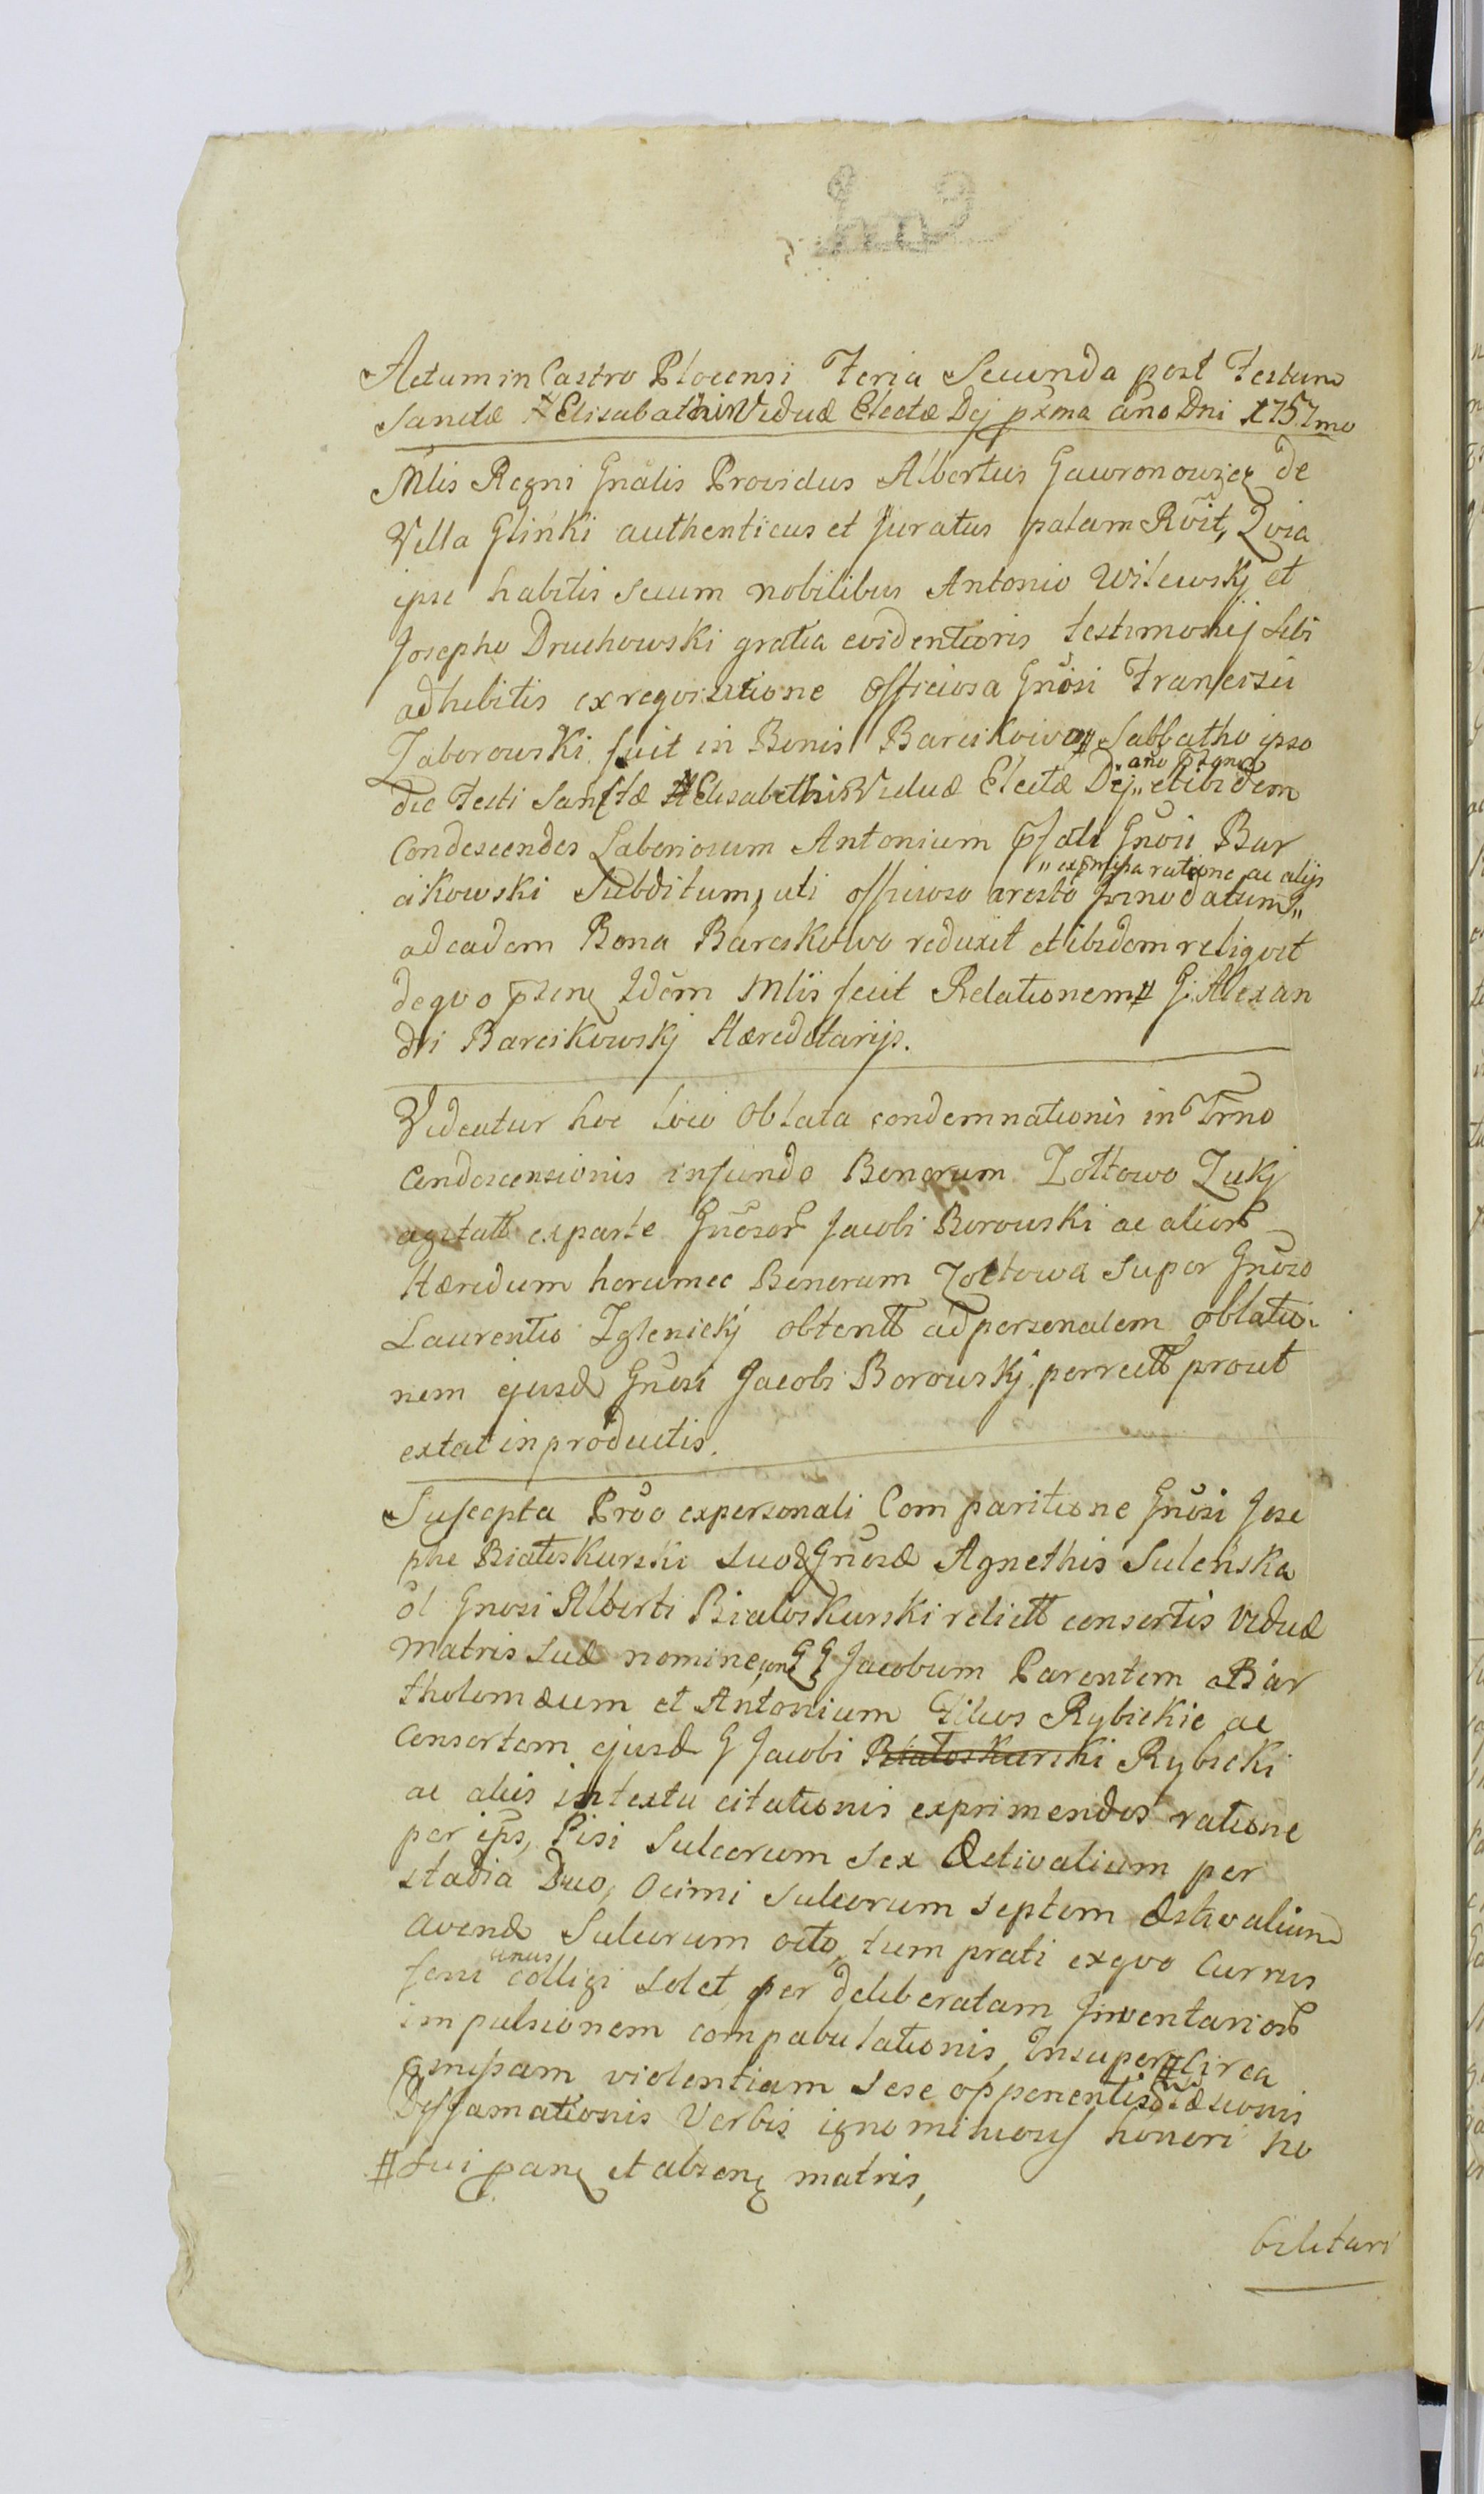 Actum in Castro Plocensi Feria Secunda post Festum
Sanctæ Elisabathis Viduæ Electæ Dej pxma año Dni 1757mo
Mlis Regni Gnalis Providus Albertus Gawronowicz de
Villa Glinki authenticus et Juratus palam Rñit, Qvia
ipse habitis secum nobilibus Antonio Wilewskj et
Josepho Druchowski gratia evidentioris testimonij sibi
adhibitis ex reqvisitione officiosa Gnosi Francisci
Zaborowski fuit in Bonis Barcikowo # Sabbatho ipso
die Festi Sanctæ Elisabethis Viduæ Electæ Dej,, año pñnti,, et ibidem
condescendes Laboriosum Antonium Gnosi Bar
cikowski Subditum, uti officioso aresto ,, ex pmissa ratione ac alijs
ad eadem Bona Barcikowo reduxit et ibidem reliqvit
de qvo Idem Mlis fecit Relationem # G: Alexan
dri Barcikowskj Hæreditarijs.
Videatur hoc loco Oblata condemnationis in Trno
Condescensionis in fundo Bonorum Zołtowo Zukj
agitatt ex parte Gnosor Jacobi Borowski ac alior
Hæredum horumec Bonorum Zołtowa super Gnoso
Laurentio Zglenickj obtentt ad personalem oblatio-
nem ejusd Gnosi Jacobi Borowskj porrectt prout
extat in productis.
Suscepta Prõo ex personali Comparitione Gnosi Jose
phi Białoskurski suo & Gnosæ Agnethis Suleńska
ol Gnosi Alberti Białoskurski relictt consortis viduæ
matris suæ nomine, con GG Jacobum Parentem Bar
tholomæum et Antonium Filios Rybickie ac
Consortem ejusd G Jacobi Białoskurski Rybicki
ac aliis in textu citationis exprimendos ratione
per ips, Pisi Sulcorum sex Æstivalium per
stadia Duo, Ocimi sulcorum septem Æstivalium
avenæ Sulcorum octo, tum prati ex qvo Currus
feni unus colligi solet per deliberatam Inventarior
impulsionem compabulationis, Insuper # circa
violentiam sese opponentis
Diffamationis Verbis ignominiosis honori no
# Sui et absen matris,
bilitari